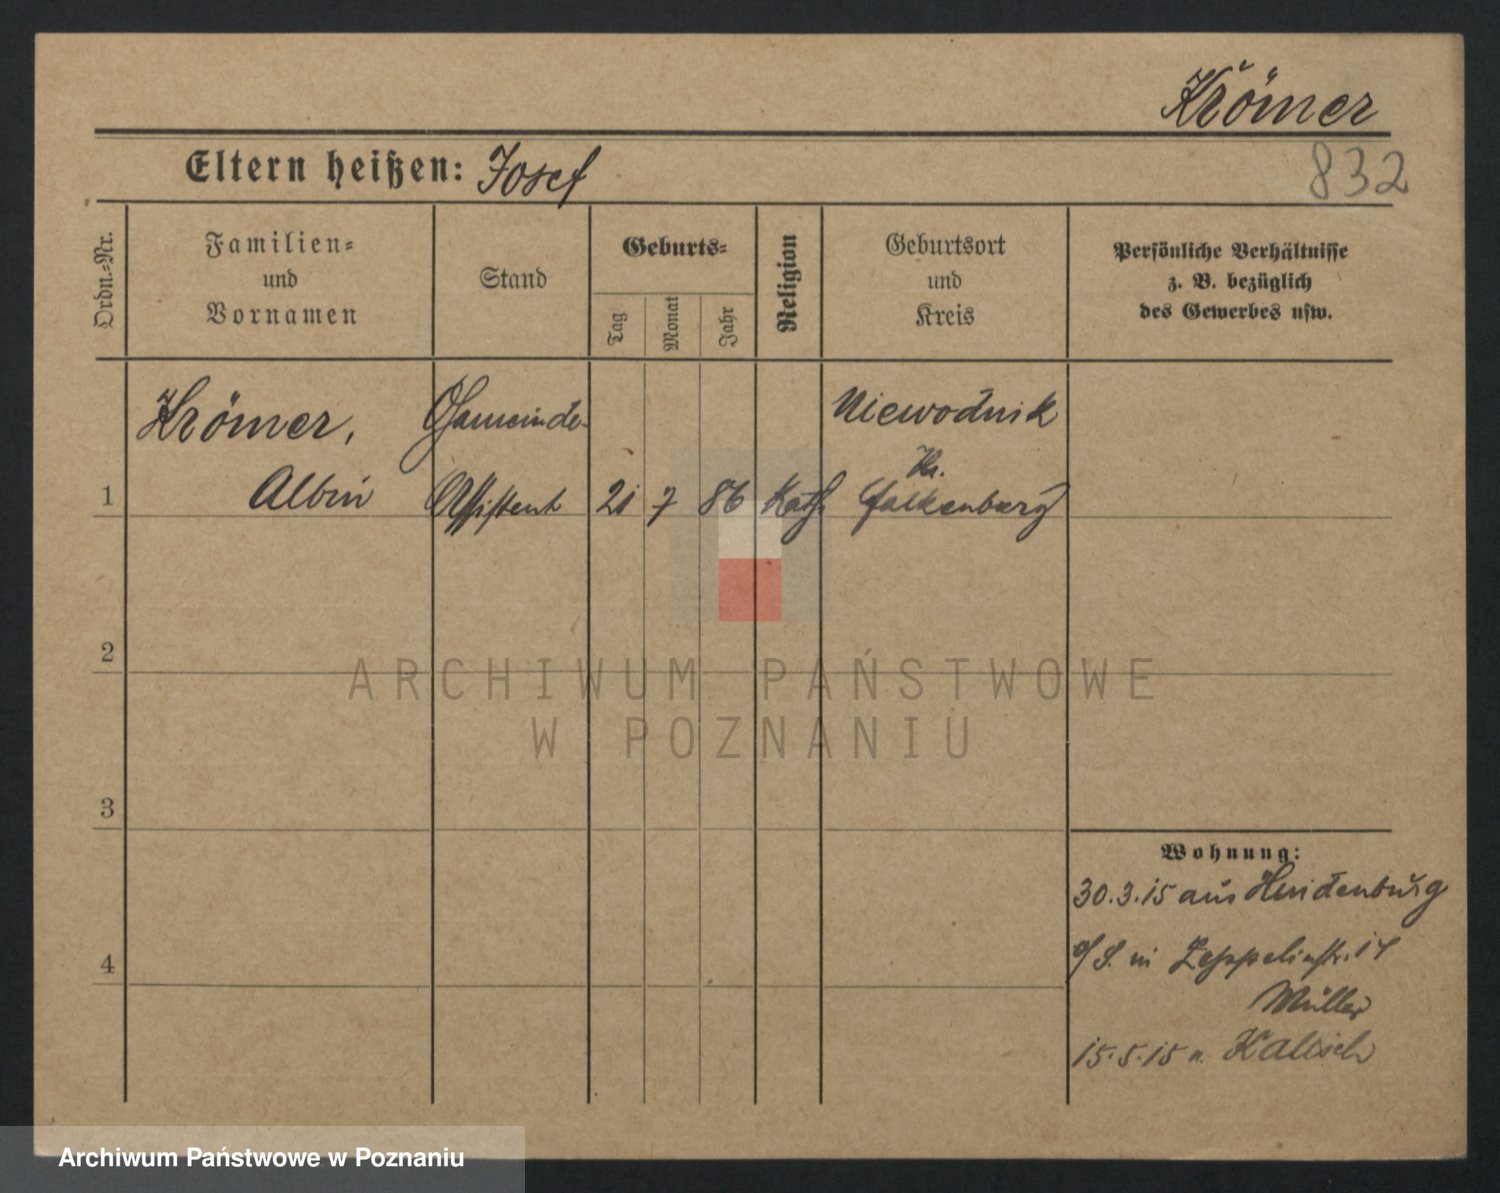 Krömer
832
Eltern heißen: Josef
Ordn.-Nr.
Familien-
und
Vornamen
Stand
Geburts-
Tag
Monat
Jahr
Religion
Geburtsort
und
Kreis
Persönliche Verhältnisse
z. B. bezüglich
des Gewerbes usw.
Krömer,
Gemeinde-
Niewodnik
1
Albin
Assistent
21
7
86
Kath.
Kr.
Falkenburg
2
3
4
Wohnung:
30.3.15 aus Hindenburg
O/S. in Zeppelinstr. 14
Müller
15.5.15 n. Kalisch
ARCHIWUM PAŃSTWOWE
W POZNANIU
Archiwum Państwowe w Poznaniu